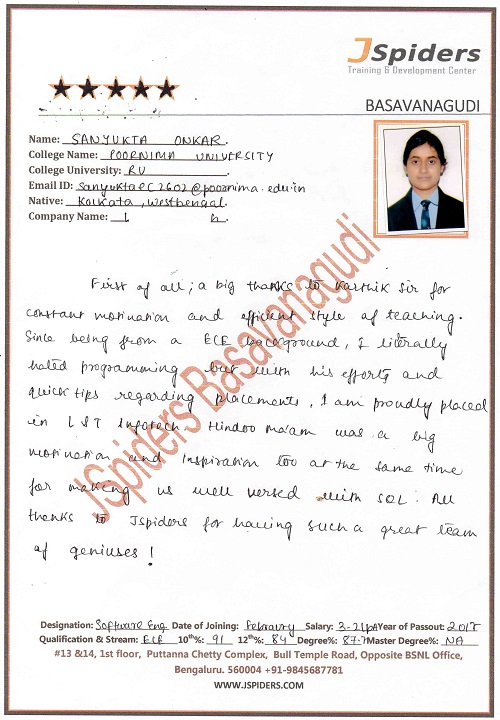 JSpiders
Training & Development Center
BASAVANAGUDI
Name: SANYUKTA ONKAR.
College Name: POORNIMA UNIVERSITY
College University: RU
Email ID: Sanyuktaec2602@poornima.edu.in
Native: Kolkata, Westbengal.
Company Name: L
First of all, a big thanks to Karthik Sir for
constant motivation and efficient style of teaching.
Since being from a ECE background, I literally
hated programming but with his efforts and
quick tips regarding placements, I am proudly placed
in L&T Infotech. Hindoo ma'am was a big
motivation and Inspiration too at the same time
for making us well versed with SQL. All
thanks to Jspiders for having such a great team
of geniuses!
JSpiders Basavanagudi
Designation: Software Eng Date of Joining: February Salary: Year of Passout:
Qualification & Stream: ECE 10th%: 91 12th%: 84 Degree%: 87.7 Master Degree%: NA
#13 &14, 1st floor, Puttanna Chetty Complex, Bull Temple Road, Opposite BSNL Office,
Bengaluru. 560004 +91-9845687781
WWW.JSPIDERS.COM